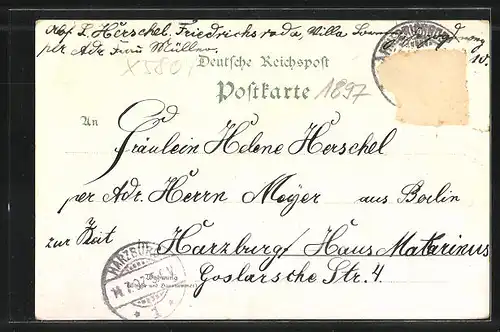 Abs. L. Herschel, Friedrichsroda, Villa
per Adr. Frau Müller.
X5801
Deutsche Reichspost
Postkarte 1897
An
Fräulein Helene Herschel
per Adr. Herrn Meyer aus Berlin
zur Zeit Harzburg/ Haus Mathrinus
Goslarsche Str. 4.
HARZBURG
14.7.97
Wohnung
(Straße und Hausnummer)
1